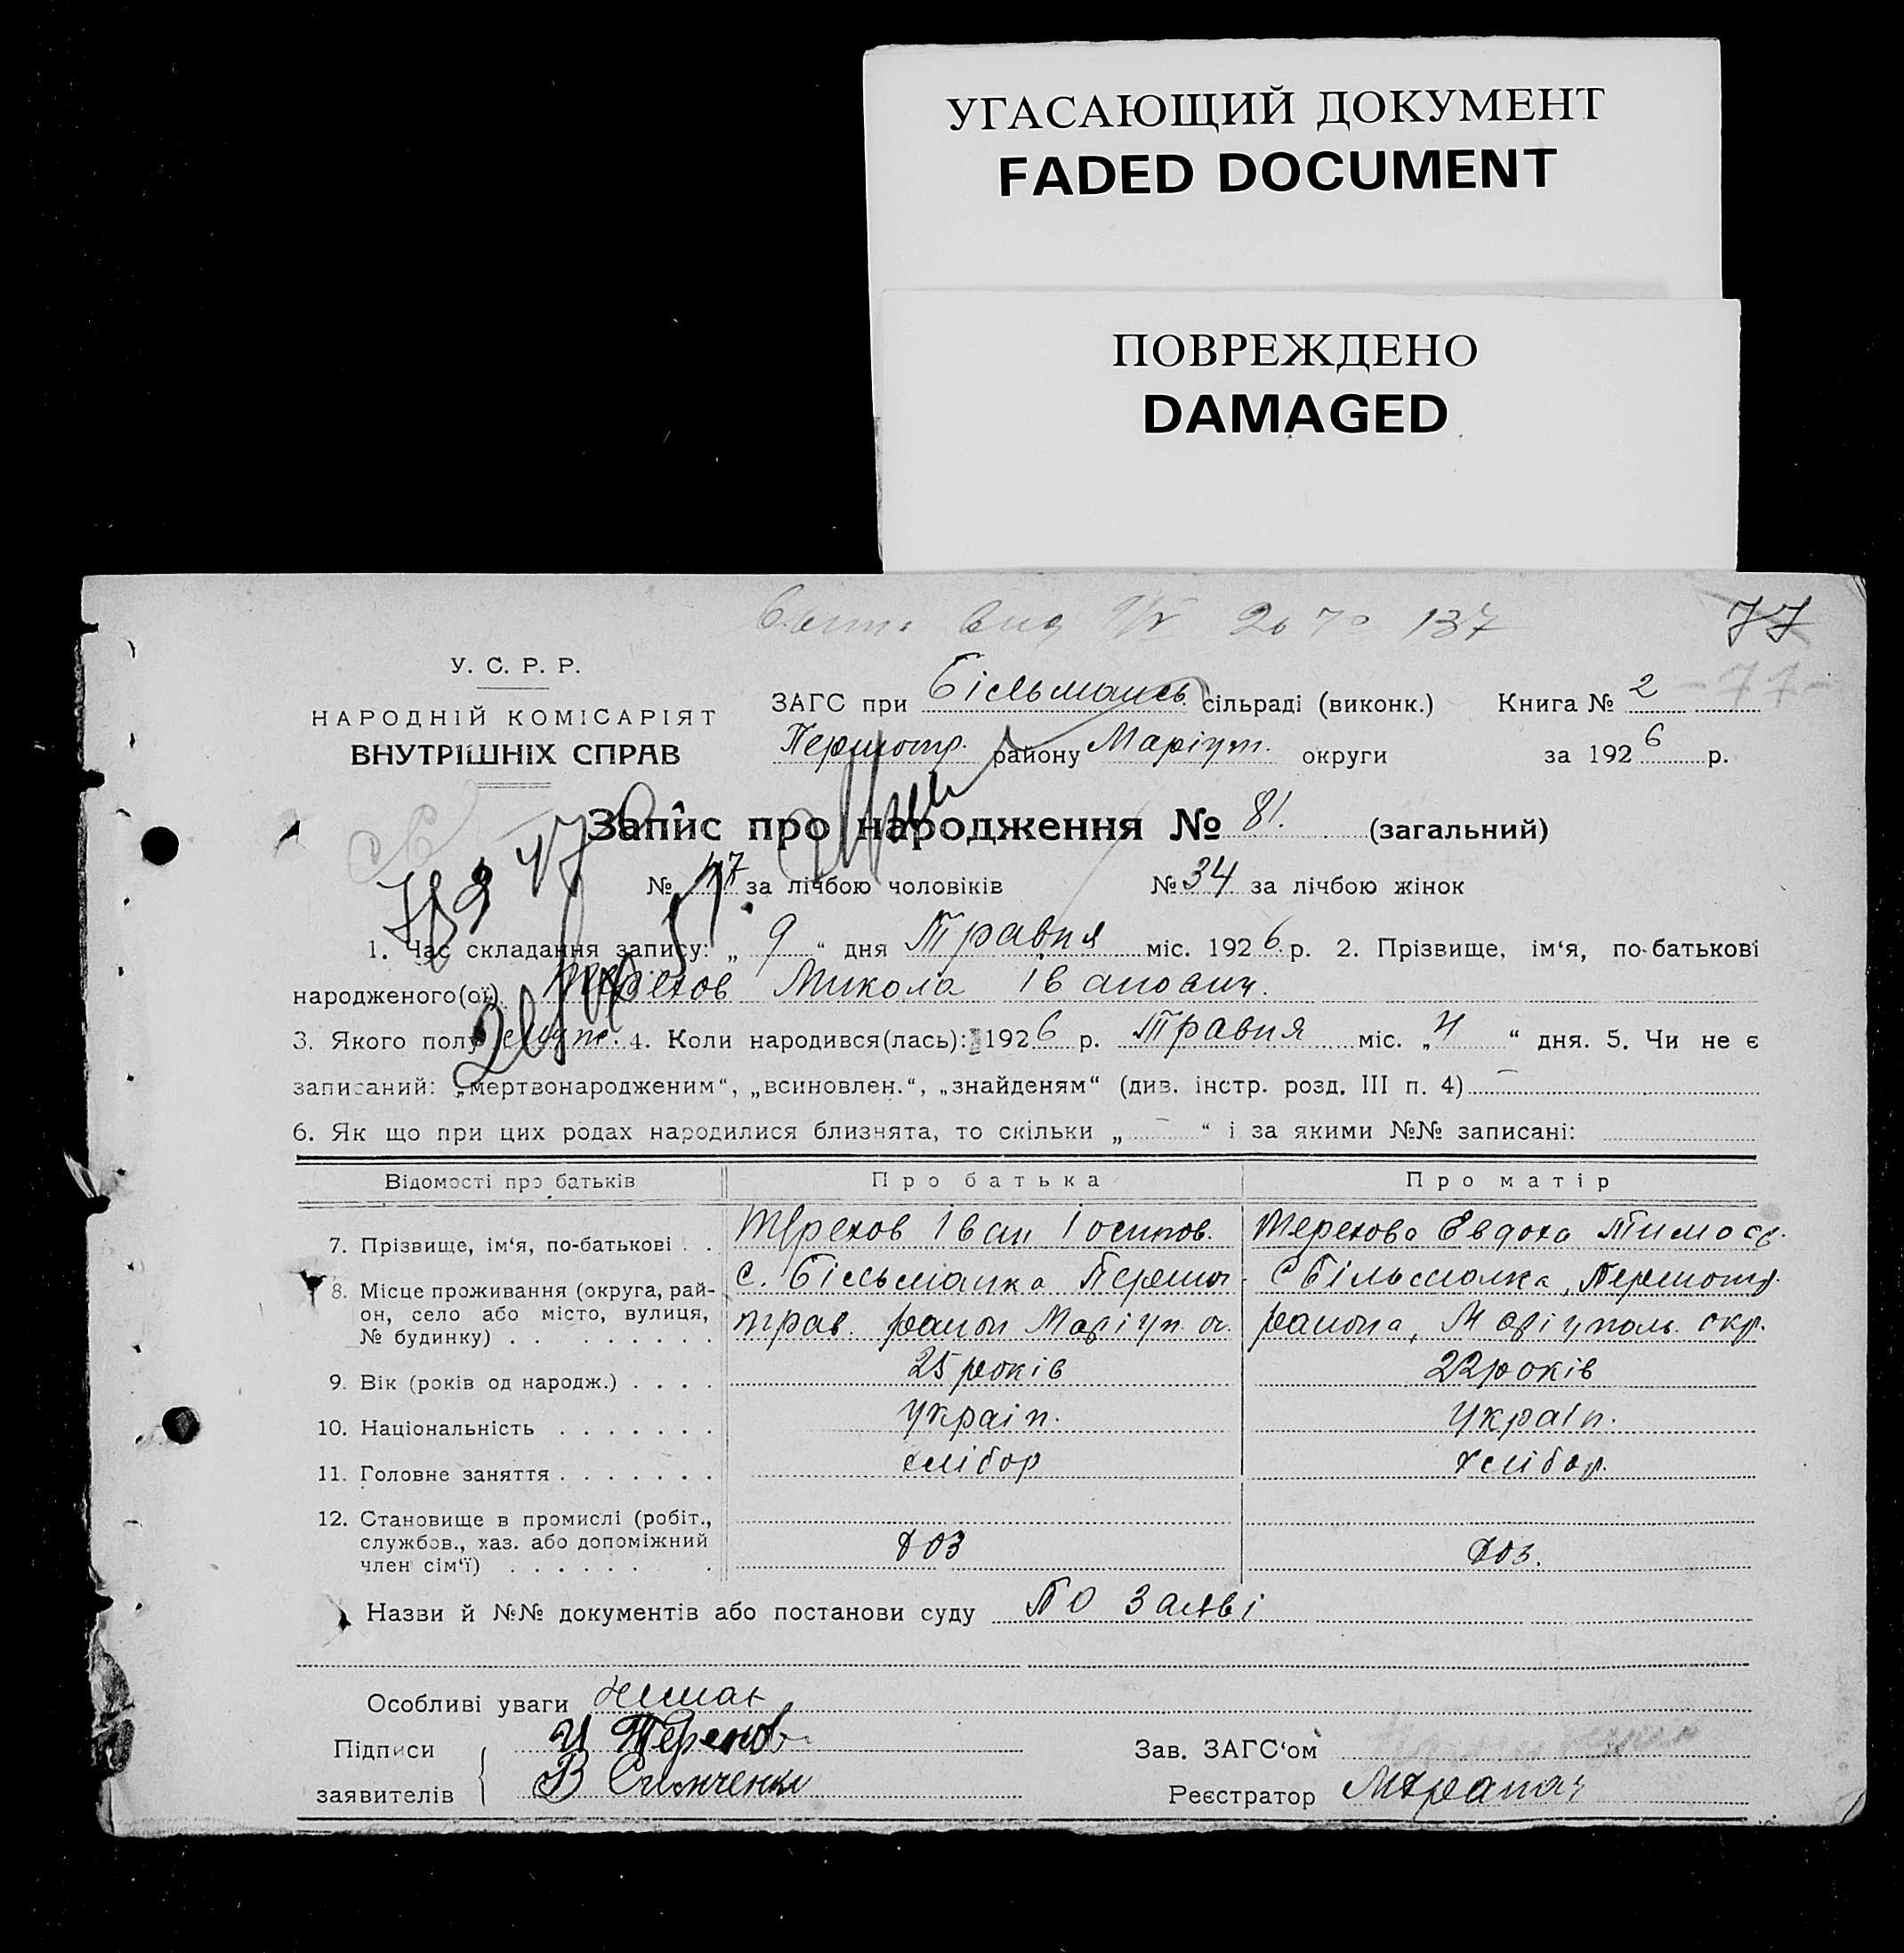 УГАСАЮЩИЙ ДОКУМЕНТ
FADED DOCUMENT
ПОВРЕЖДЕНО
DAMAGED
137 77
У. С. Р. Р.
НАРОДНІЙ КОМІСАРІЯТ
ВНУТРІШНІХ СПРАВ
ЗАГС при Більмансь. сільраді (виконк.) Книга № 2
Першотр. району Маріуп. округи за 1926 р.
Запис про народження № 81. (загальний)
№ 47 за лічбою чоловіків № 34 за лічбою жінок
1. Час складання запису: „ 9 “ дня Травня міс. 1926 р. 2. Прізвище, ім‘я, по-батькові
народженого(ої) Терехов Микола Іванович.
3. Якого полу 4. Коли народився(лась): 1926 р. Травня міс. „ 4 “ дня. 5. Чи не є
записаний: „мертвонародженим“, „всиновлен.“, „знайденям“ (див. інстр. розд. III п. 4) —
6. Як що при цих родах народилися близнята, то скільки „ — “ і за якими №№ записані:
Відомості про батьків Про батька Про матір
7. Прізвище, ім‘я, по-батькові . . Терехов Іван Іосипов. Терехова Евдоха Тимоф.
8. Місце проживання (округа, рай-он, село або місто, вулиця, № будинку) . . с. Більманка Першотрав. район Маріуп. о. с Більманка, Першотр. района, Маріуполь. окр.
9. Вік (років од народж.) . . . . 25 років 22 років
10. Національність . . . . . . . україн. україн.
11. Головне заняття . . . . . . . хлібор хлібор.
12. Становище в промислі (робіт., службов., хаз. або допоміжний член сім‘ї) . . . . . . хоз хоз.
Назви й №№ документів або постанови суду по заяві
Особливі уваги немає
Підписи И Терехов Зав. ЗАГС‘ом
заявителів В Реєстратор